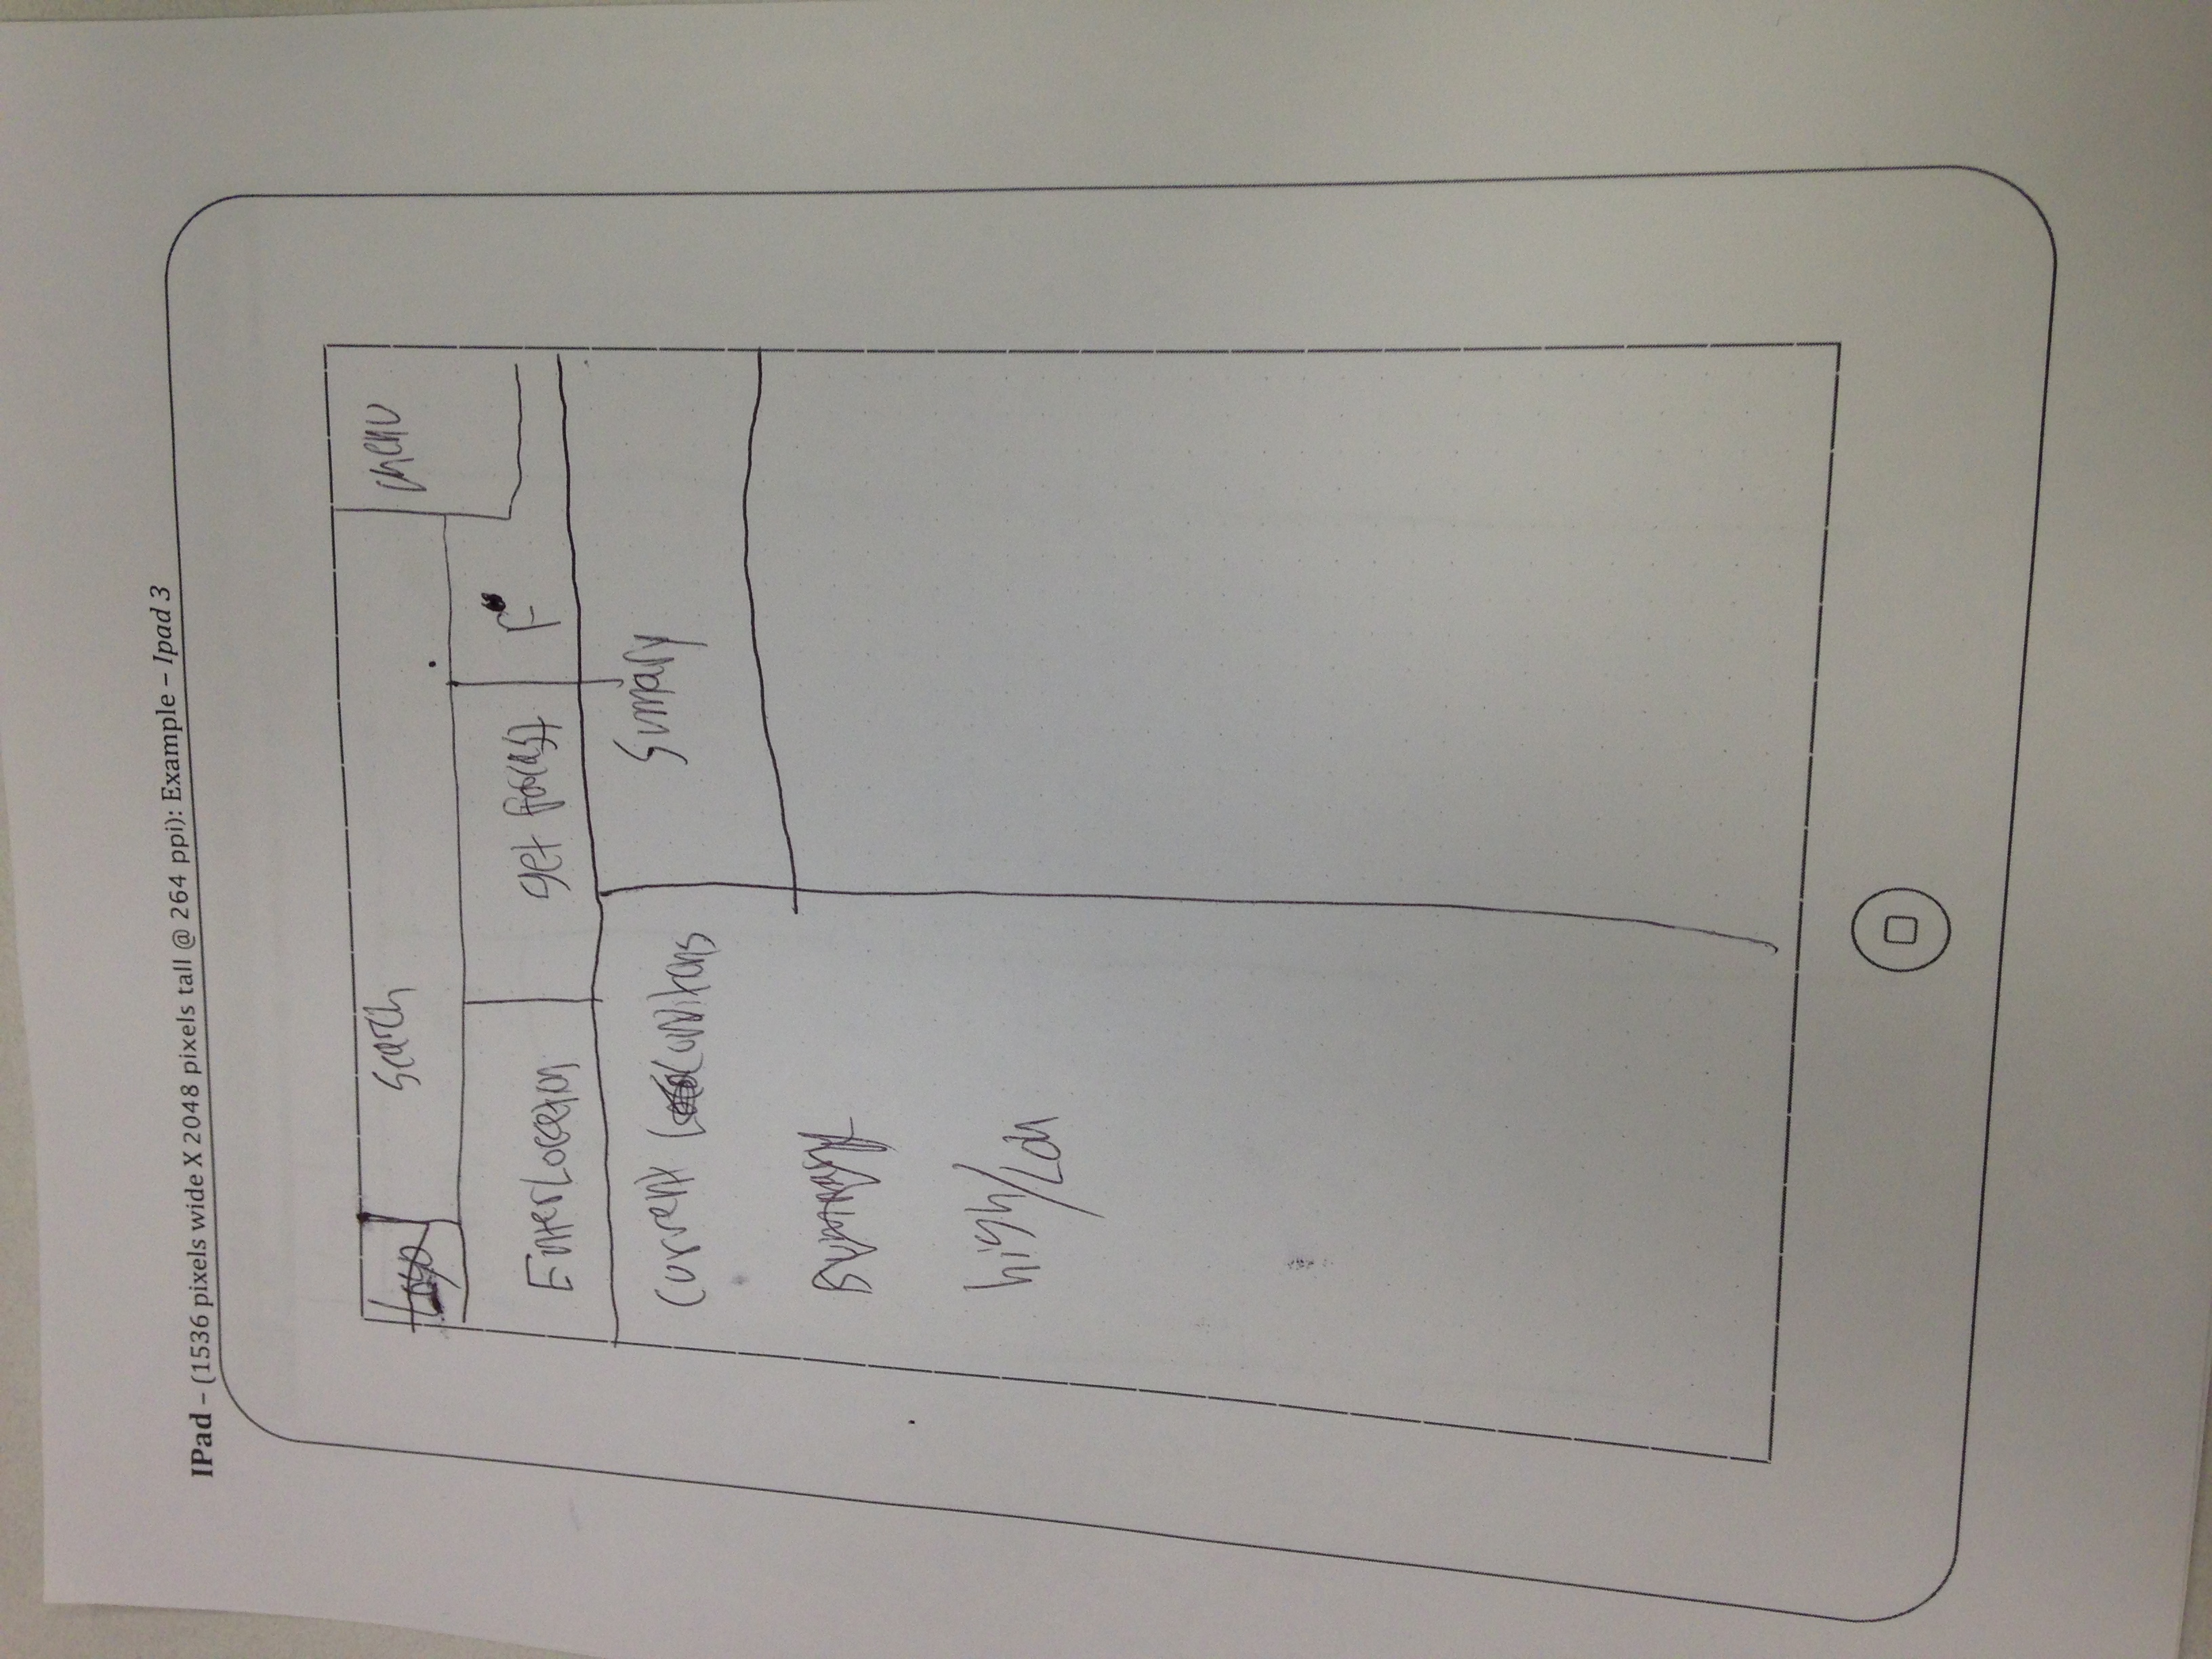 IPad – (1536 pixels wide X 2048 pixels tall @ 264 ppi): Example – Ipad 3
Logo Search menu
Enter Location get forcast F°
Current Conditons Sumary
Summary
high/Low